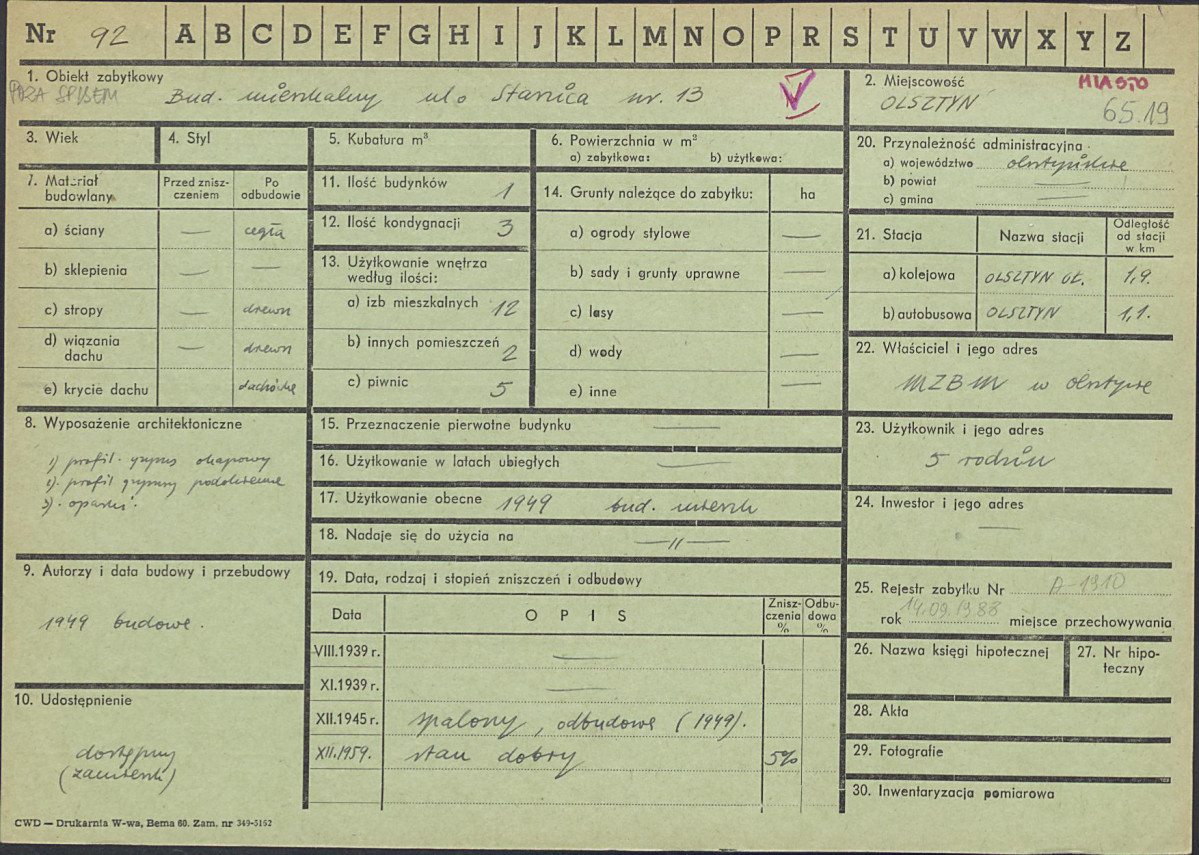 Nr 92 A B C D E F G H I J K L M N O P R S T U V W X Y Z
1. Obiekt zabytkowy
POZA SPISEM
Bud. mieszkalny ul.
nr. 13
2. Miejscowość
MIASTO
OLSZTYN
65.19
3. Wiek
4. Styl
5. Kubatura m³
6. Powierzchnia w m²
a) zabytkowa: b) użytkowa:
7. Materiał budowlany
Przed zniszczeniem
Po odbudowie
a) ściany — cegła
b) sklepienia — —
c) stropy — drewn
d) wiązania dachu — drewn
e) krycie dachu
8. Wyposażenie architektoniczne
1) profil. gzyms okapowy
2). profil gzymsy
3).
9. Autorzy i data budowy i przebudowy
1949 budowa.
10. Udostępnienie
dostępny
CWD — Drukarnia W-wa, Bema 60. Zam. nr 349-5162
11. Ilość budynków 1
12. Ilość kondygnacji 3
13. Użytkowanie wnętrza według ilości:
a) izb mieszkalnych 12
b) innych pomieszczeń 2
c) piwnic 5
14. Grunty należące do zabytku: ha
a) ogrody stylowe —
b) sady i grunty uprawne —
c) lasy —
d) wody —
e) inne —
15. Przeznaczenie pierwotne budynku —
16. Użytkowanie w latach ubiegłych —
17. Użytkowanie obecne 1949 bud. mieszk
18. Nadaje się do użycia na —„—
19. Data, rodzaj i stopień zniszczeń i odbudowy
Data
OPIS
Zniszczenia %
Odbudowa %
VIII.1939 r. —
XI.1939 r. —
XII.1945 r. spalony, odbudowa (1949).
XII.1959. stan dobry 5%
20. Przynależność administracyjna
a) województwo olsztyńskie
b) powiat —
c) gmina —
21. Stacja
Nazwa stacji
Odległość od stacji w km
a) kolejowa OLSZTYN GŁ. 1,9.
b) autobusowa OLSZTYN 1,1.
22. Właściciel i jego adres
MZBM w Olsztynie
23. Użytkownik i jego adres
5 rodzin
24. Inwestor i jego adres
—
25. Rejestr zabytku Nr A-1910
rok 14.09.1988 miejsce przechowywania
26. Nazwa księgi hipotecznej
27. Nr hipoteczny
28. Akta
29. Fotografie
30. Inwentaryzacja pomiarowa